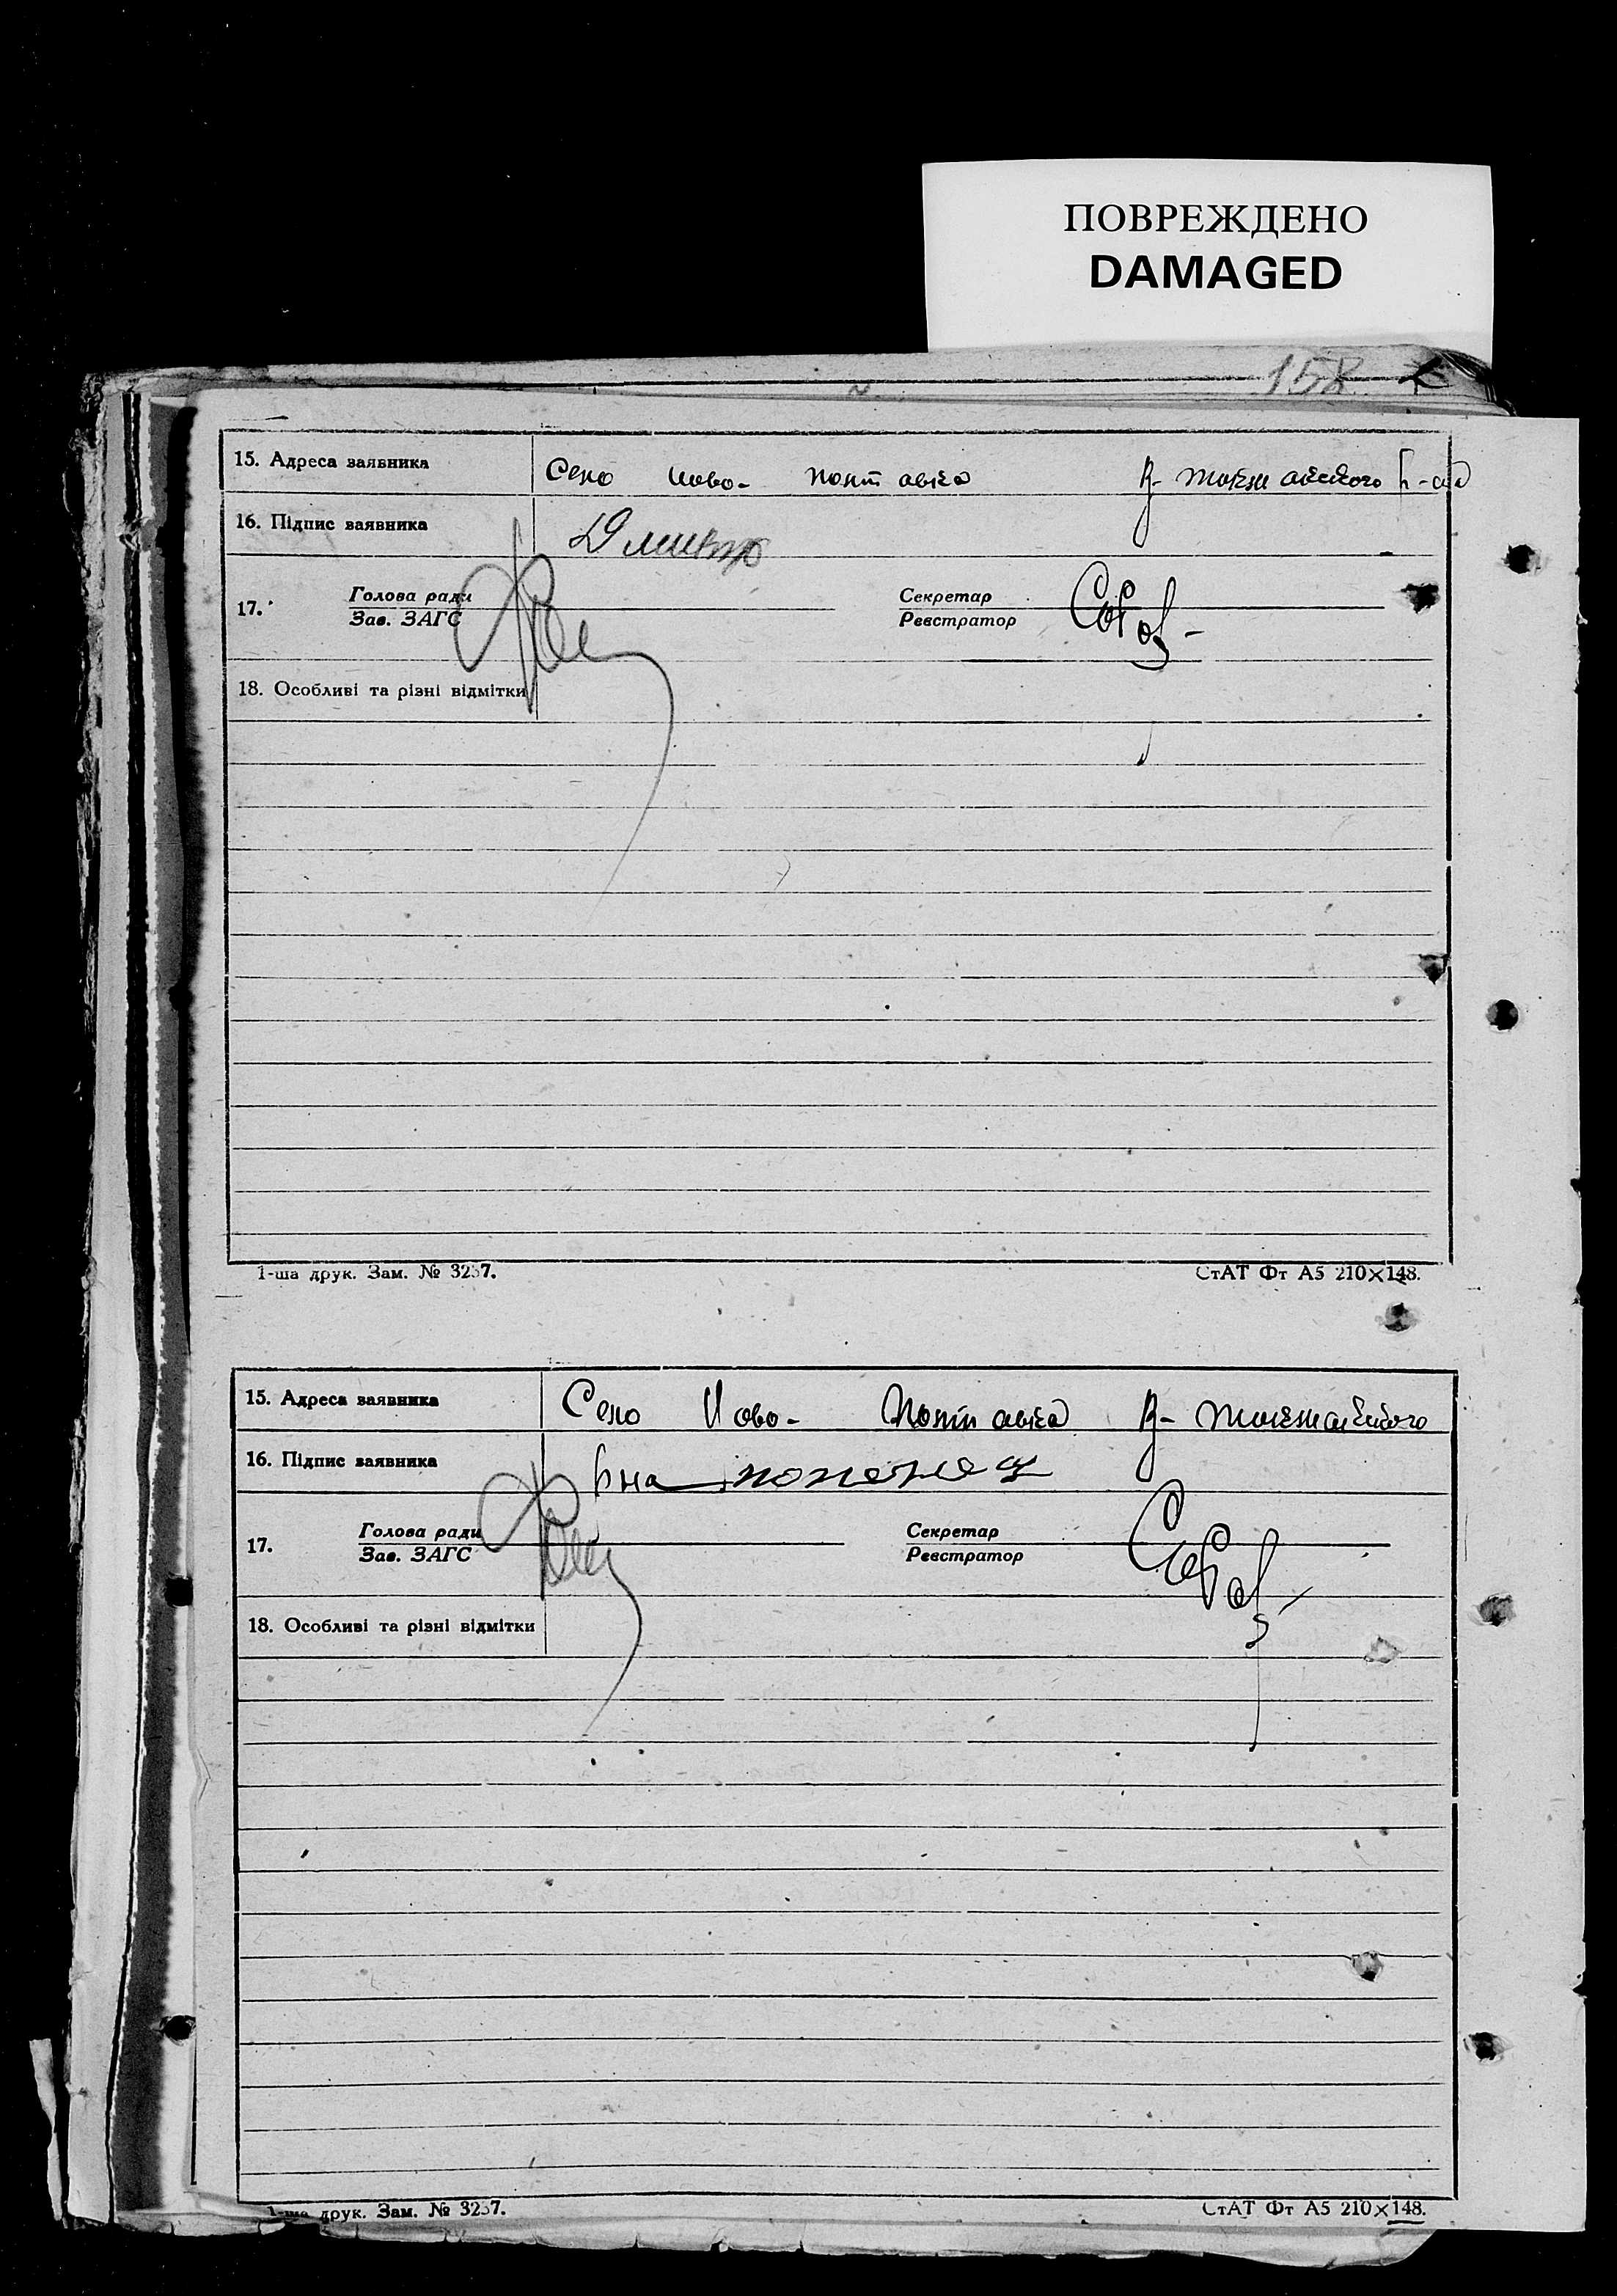 ПОВРЕЖДЕНО
DAMAGED
158
15. Адреса заявника Село Ново- Полтавка В-
16. Підпис заявника
17. Голова ради Секретар
Зав. ЗАГС Реєстратор
18. Особливі та різні відмітки
1-ша друк. Зам. № 3237. СтАТ Фт А5 210×148.
15. Адреса заявника Село Ново- Полтавка В-
16. Підпис заявника
17. Голова ради Секретар
Зав. ЗАГС Реєстратор
18. Особливі та різні відмітки
1-ша друк. Зам. № 3237. СтАТ Фт А5 210×148.